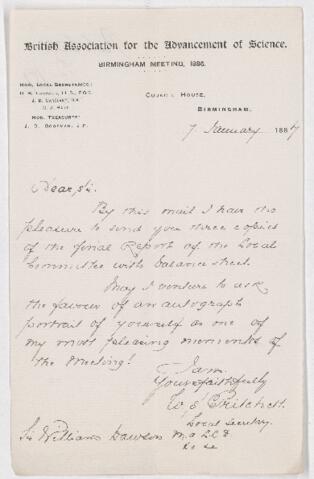 British Association for the Advancement of Science.
BIRMINGHAM MEETING, 1886.
HON. LOCAL SECRETARIES:
HON. TREASURER:
J. D. GOODMAN, J.P.
COUNCIL HOUSE,
BIRMINGHAM.
7 January 1887
Dear Sir.
By this mail I have the
pleasure to send you three copies
of the final Report of the Local
Committee with balance sheet.
May I venture to ask
the favour of an autograph
portrait of yourself as one of
my most pleasing mementos of
the Meeting!
I am
Yours faithfully
Local Secretary.
Sir William Dawson